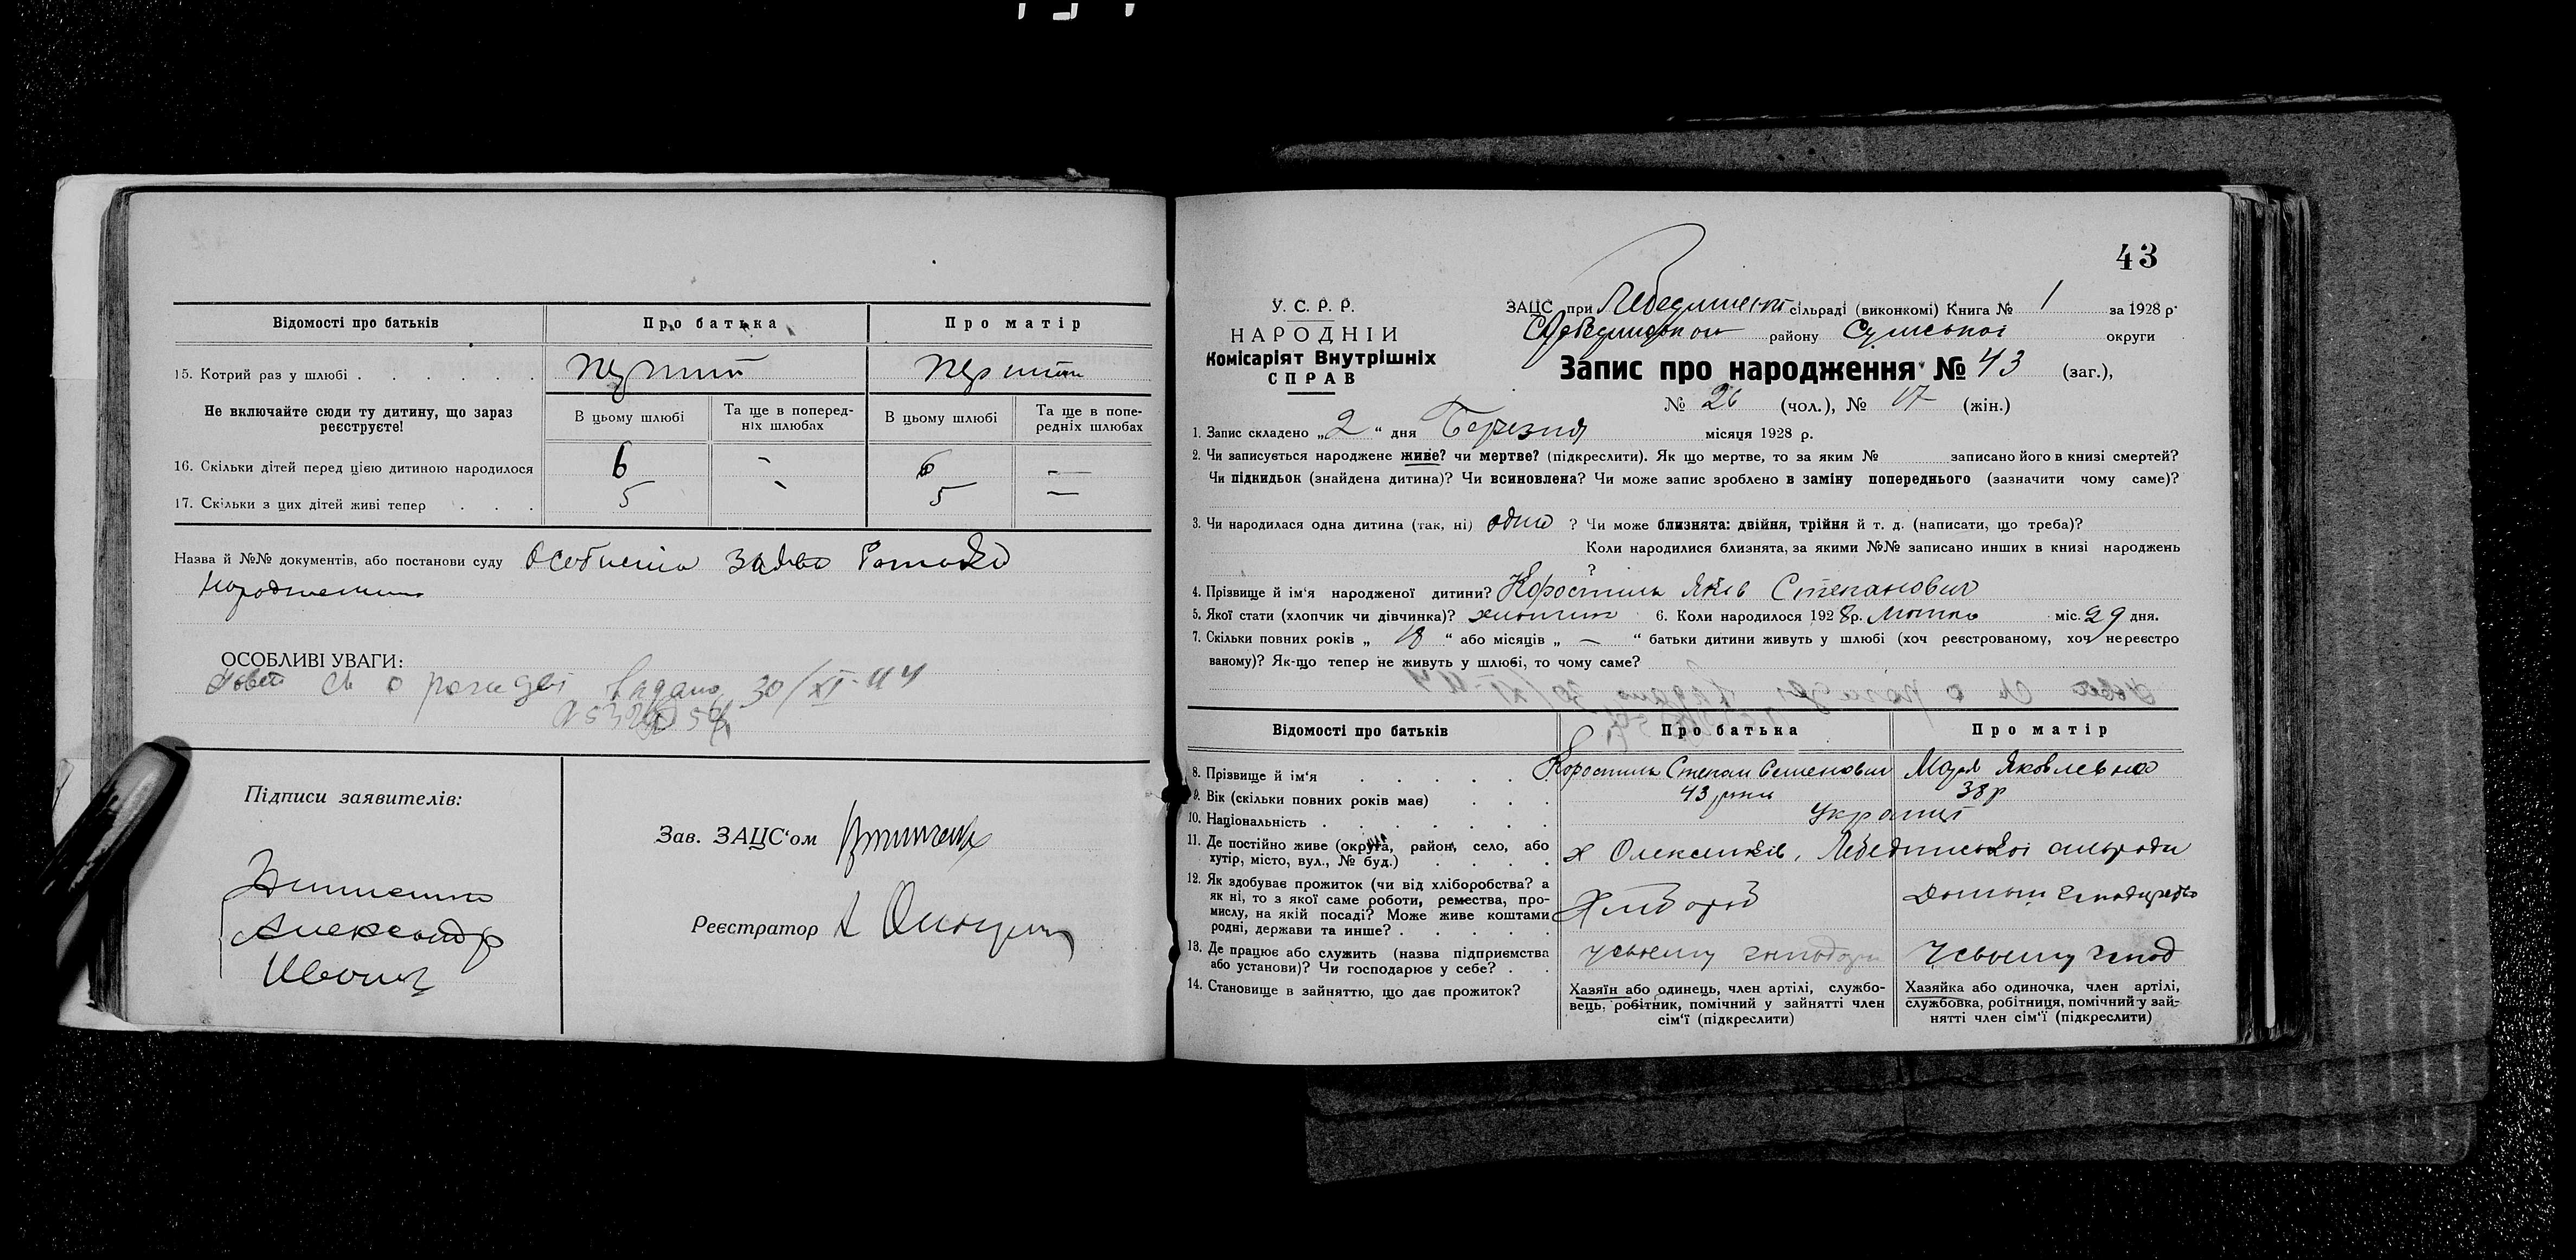 Відомості про батьків Про батька Про матір
15. Котрий раз у шлюбі . . . . . . перший перший
Не включайте сюди ту дитину, що зараз реєструєте!
В цьому шлюбі Та ще в поперед- В цьому шлюбі Та ще в попе-
ніх шлюбах редніх шлюбах
16. Скільки дітей перед цією дитиною народилося 6 - 6 —
17. Скільки з цих дітей живі тепер . . . 5 - 5 —
Назва й №№ документів, або постанови суду Особиста заява
народження
ОСОБЛИВІ УВАГИ:
св о рожде видано 30/XI-44
Підписи заявителів:
Александр
Иванц
Зав. ЗАЦС'ом
Реєстратор
43
У. С. Р. Р.
НАРОДНІЙ
Комісаріят Внутрішніх
СПРАВ
ЗАЦС при Лебединські сільраді (виконкомі) Книга № 1 за 1928 р.
району Сумської округи
Запис про народження № 43 (заг.),
№ 26 (чол.), № 17 (жін.)
1. Запис складено „2“ дня Березня місяця 1928 р.
2. Чи записується народжене живе? чи мертве? (підкреслити). Як що мертве, то за яким № записано його в книзі смертей?
Чи підкидьок (знайдена дитина)? Чи всиновлена? Чи може запис зроблено в заміну попереднього (зазначити чому саме)?
3. Чи народилася одна дитина (так, ні) одна ? Чи може близнята: двійня, трійня й т. д. (написати, що треба)?
Коли народилися близнята, за якими №№ записано инших в книзі народжень
?
4. Прізвище й ім'я народженої дитини? Коростиль Яків Степанович
5. Якої стати (хлопчик чи дівчинка)? хлопчик 6. Коли народилося 1928 р. Лютого міс. 29 дня.
7. Скільки повних років „ 18 “ або місяців „ — “ батьки дитини живуть у шлюбі (хоч реєстрованому, хоч нереєстро
ваному)? Як-що тепер не живуть у шлюбі, то чому саме?
Відомості про батьків Про батька Про матір
8. Прізвище й ім'я . . . . . Коростиль Степан Семенович Марія Яковлевна
9. Вік (скільки повних років має) . . . 43 роки 38 р
10. Національність . . . . . . . Українці
11. Де постійно живе (округа, район, село, або
хутір, місто, вул., № буд.) . . . . х Олексенків, Лебединської сільради
12. Як здобуває прожиток (чи від хліборобства? а
як ні, то з якої саме роботи, ремества, про-
мислу, на якій посаді? Може живе коштами
родні, держави та инше? . . . . . Хлібороб
13. Де працює або служить (назва підприємства
або установи)? Чи господарює у себе? . . У своєму господар У своєму господ
14. Становище в зайняттю, що дає прожиток?
Хазяїн або одинець, член артілі, службо-
вець, робітник, помічний у зайнятті член
сім'ї (підкреслити)
Хазяйка або одиночка, член артілі,
службовка, робітниця, помічний у зай-
нятті член сім'ї (підкреслити)